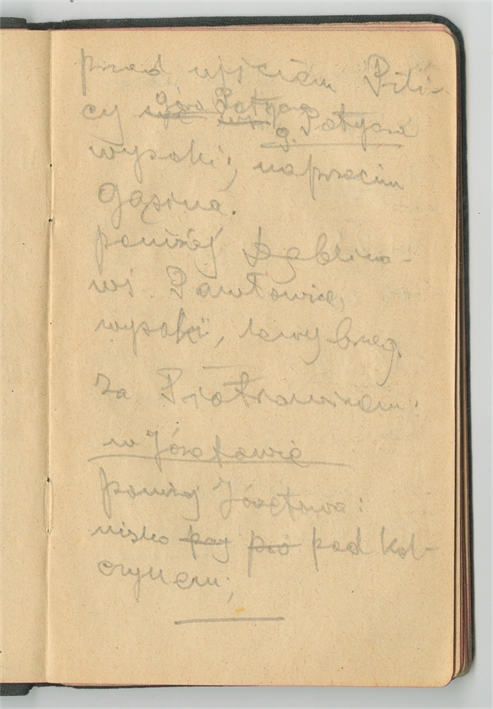 przed ujściem Pili-
cy góra Potycz
g. Potycza
wysoki; naprzeciw
poniżej Dęblina -
wś. Pawłowice,
wysoki, lewy brzeg.
Za Piotrowinem:
w Józefowie
poniżej Józefowa:
nisko pod Kol-
czynem;